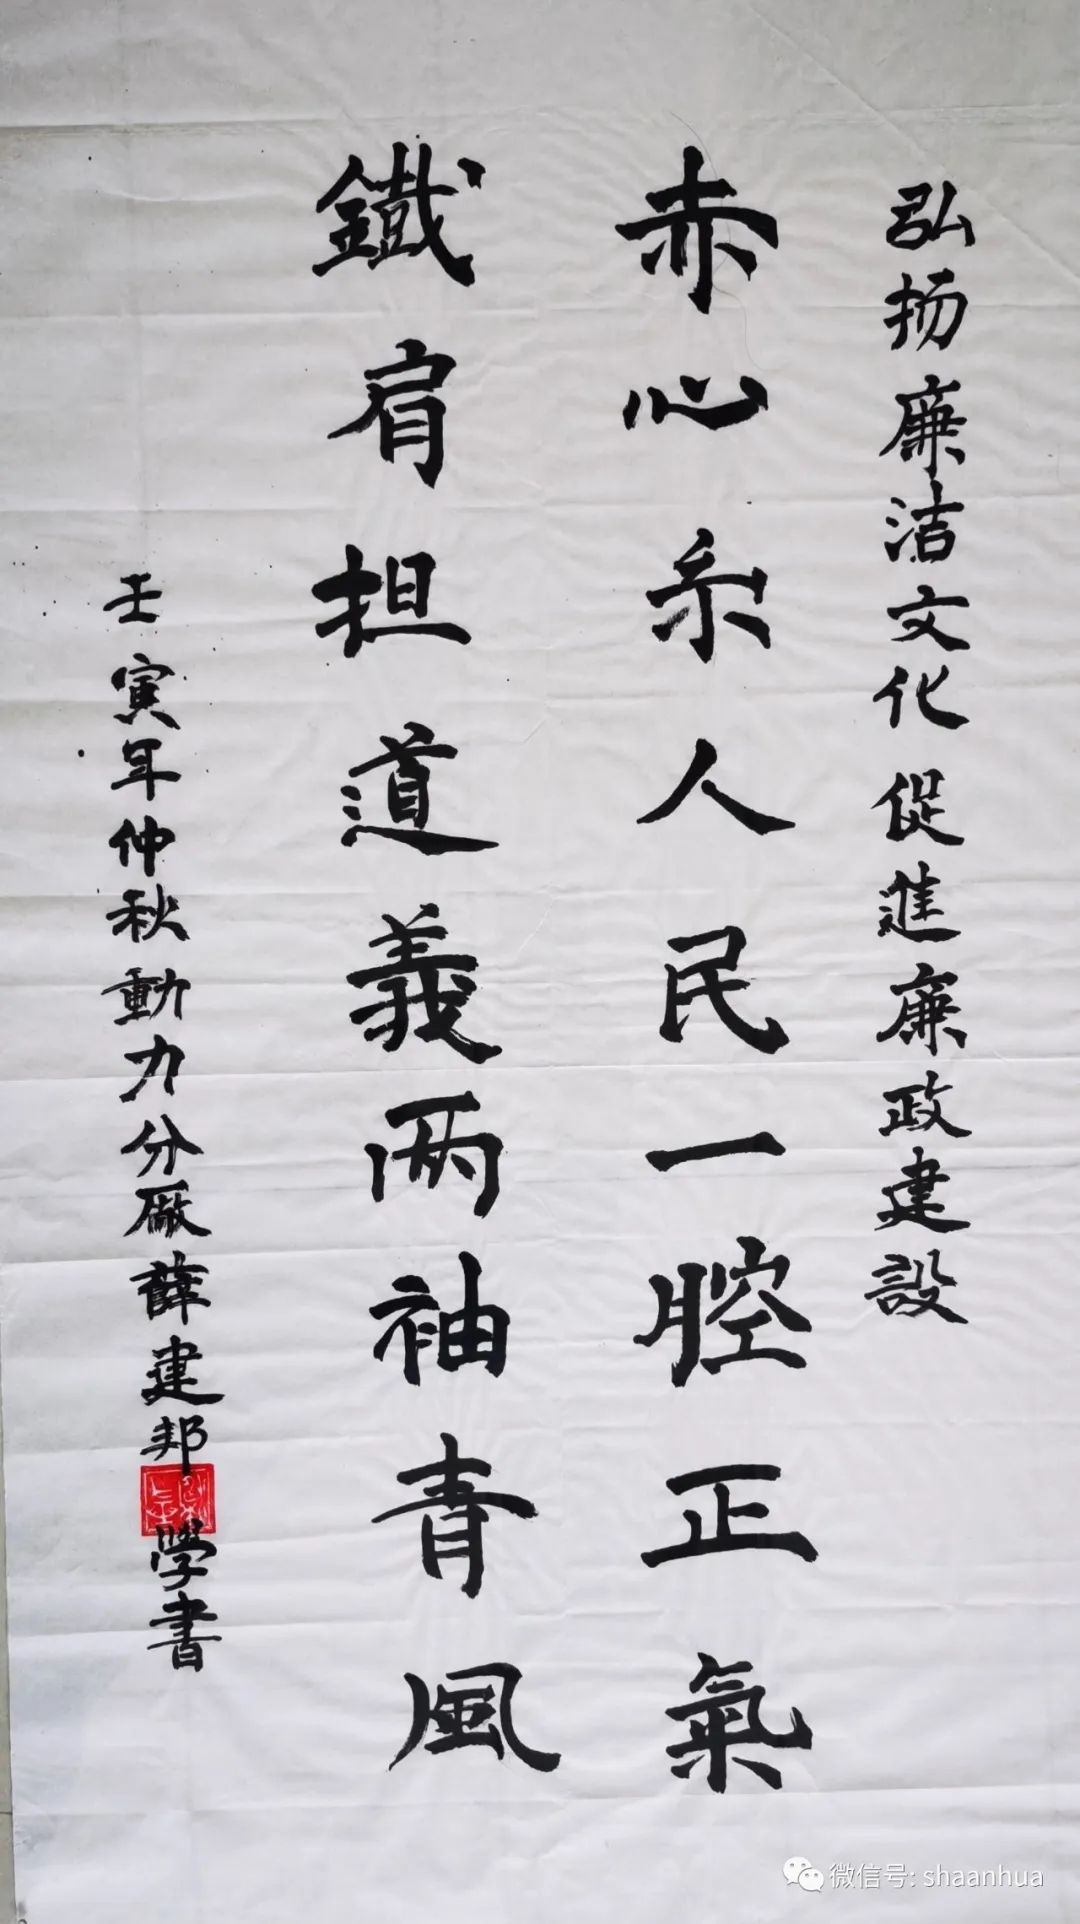 弘扬廉洁文化促進廉政建設
赤心系人民一腔正氣
鐵肩担道義两袖青風
壬寅年仲秋動力分厰薛建邦學書
微信号: shaanhua